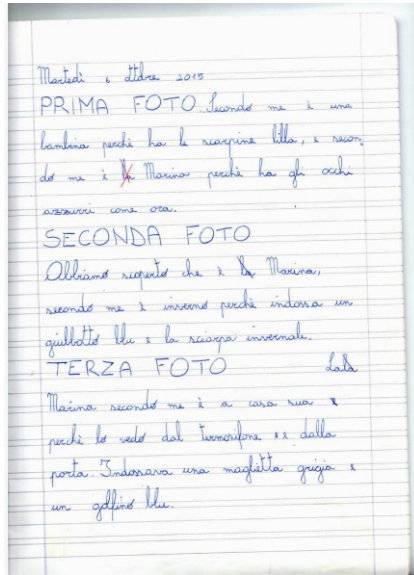 Martedì 6 ottobre 2015
PRIMA FOTO. Secondo me è una
bambina perchè ha le scarpine lilla, e secon,
do me è la Marina perchè ha gli occhi
azzurri come ora.
SECONDA FOTO
Abbiamo scoperto che è la Marina,
secondo me è inverno perchè indossa un
giubbotto blu e la sciarpa invernale.
TERZA FOTO LaLa
Marina secondo me è a casa sua
perchè lo vedo dal termosifone e dalla
porta. Indossava una maglietta grigia e
un golfino blu.